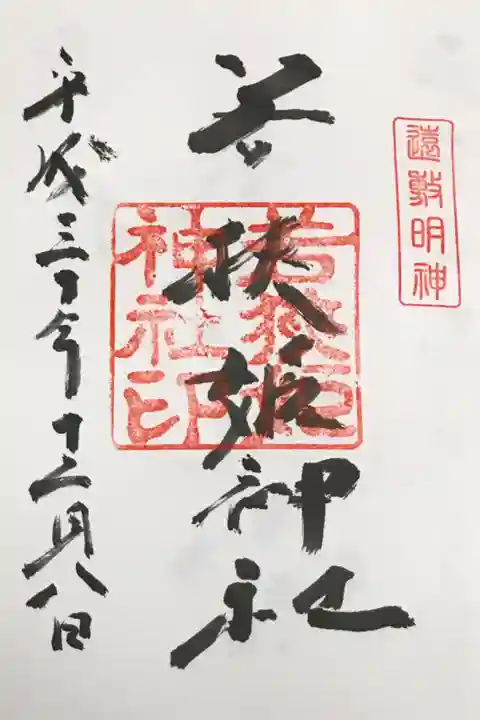 遠敷明神
若狭姫神社
若狭姫神社印
平成三十年十二月八日